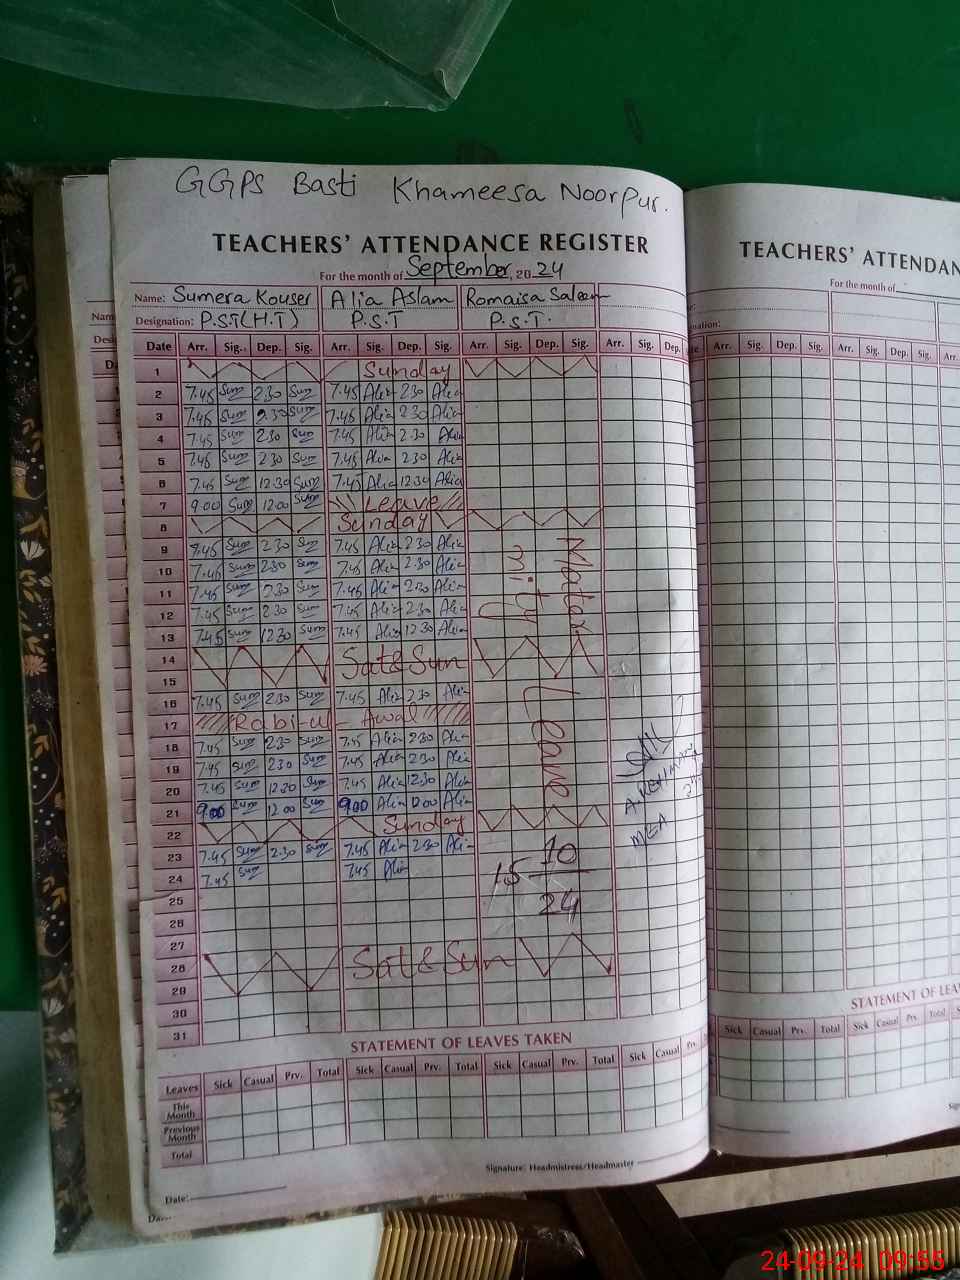 GGPS Basti Khameesa Noorpur.
TEACHERS' ATTENDANCE REGISTER
For the month of September, 2024
Name: Sumera Kouser Alia Aslam Romaisa Saleem
Designation: P.S.T(H.T) P.S.T P.S.T.
Date Arr. Sig. Dep. Sig. Arr. Sig. Dep. Sig. Arr. Sig. Dep. Sig. Arr. Sig. Dep.
1 Sunday
2 7.45 Sum 2.30 Sum 7.45 Alia 2.30 Alia
3 7.45 Sum 2.30 Sum 7.45 Alia 2.30 Alia
4 7.45 Sum 2.30 Sum 7.45 Alia 2.30 Alia
5 7.45 Sum 2.30 Sum 7.45 Alia 2.30 Alia
6 7.45 Sum 12.30 Sum 7.45 Alia 12.30 Alia
7 9.00 Sum 12.00 Sum Leave
8 Sunday
9 7.45 Sum 2.30 Sum 7.45 Alia 2.30 Alia
10 7.45 Sum 2.30 Sum 7.45 Alia 2.30 Alia
11 7.45 Sum 2.30 Sum 7.45 Alia 2.30 Alia
12 7.45 Sum 2.30 Sum 7.45 Alia 2.30 Alia
13 7.45 Sum 12.30 Sum 7.45 Alia 12.30 Alia
14 Sat & Sun
15
16 7.45 Sum 2.30 Sum 7.45 Alia 2.30 Alia
17 Rabi-ul-Awal
18 7.45 Sum 2.30 Sum 7.45 Alia 2.30 Alia
19 7.45 Sum 2.30 Sum 7.45 Alia 2.30 Alia
20 7.45 Sum 12.30 Sum 7.45 Alia 12.30 Alia
21 9.00 Sum 12.00 Sum 9.00 Alia 12.00 Alia
22 Sunday
23 7.45 Sum 2.30 Sum 7.45 Alia 2.30 Alia
24 7.45 Sum 7.45 Alia
25
26
27
28 Sat & Sun
29
30
31
Matar
nity
Leave
15 10
24
MEA
STATEMENT OF LEAVES TAKEN
Leaves Sick Casual Prv. Total Sick Casual Prv. Total Sick Casual Prv. Total Sick Casual Prv.
This Month
Previous Month
Total
Signature: Headmistress/Headmaster
Date:
TEACHERS' ATTENDAN
For the month of
nation:
Arr. Sig. Dep. Sig. Arr. Sig. Dep. Sig. Arr.
STATEMENT OF LEA
Sick Casual Prv. Total Sick Casual Prv. Total
24-09-24 09:55